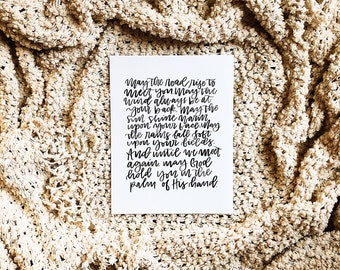 May the road rise to
meet you May the
wind always be at
your back. May the
sun shine warm
upon your face. May
the rains fall soft
upon your fields.
And until we meet
again may God
hold you in the
palm of His hand.